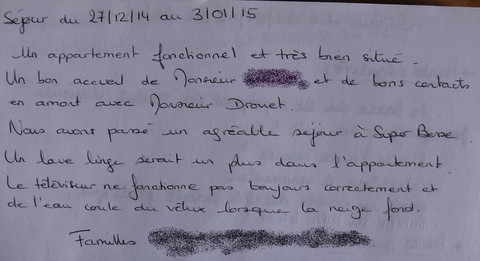 Séjour du 27/12/14 au 3/01/15
Un appartement fonctionnel et très bien situé.
Un bon accueil de Monsieur et de bons contacts
en amont avec Monsieur Drouet.
Nous avons passé un agréable séjour à Super Besse.
Un lave linge serait un plus dans l'appartement.
Le téléviseur ne fonctionne pas toujours correctement et
de l'eau coule du vélux lorsque la neige fond.
Familles